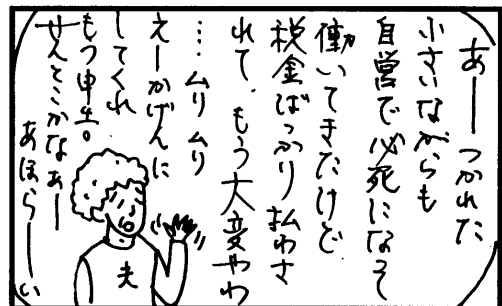 あーーつかれた
小さいながらも
自営で必死になって
働いてきたけど
税金ばっかり払わさ
れて、もう大変やわ
…ムリムリ
えーかげんに
してくれ
もう申告。
せんとこかなぁー
あほらしーい
夫